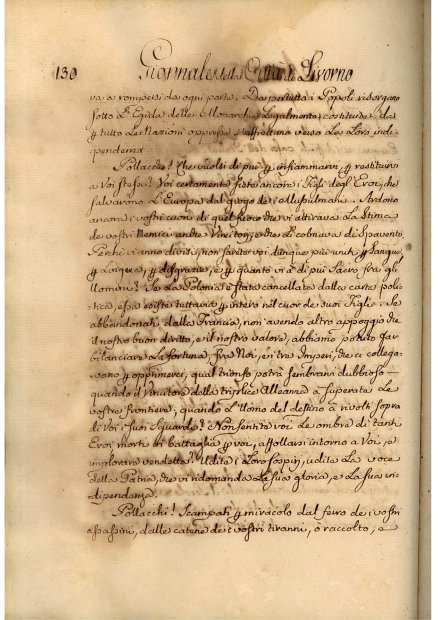 130 Giornale della Città di Livorno
va a rompersi da ogni parte. Da pertutto i Popoli risorgano
sotto L'Egida delle Monarchie Legalmente costituite: da
p tutto Le Nazioni oppresse s'affrettano verso La Loro indi=
pendenza
Pollacchi! Che vuolsi di piu p infiammarvi, p restituirvi
a Voi stessi? Voi certamente siete ancora i Figli degl'Eroi, che
salvarono L'Europa dal giogo de i Musulmani. Ardono
ancora i vostri cuori di quel fuoco che vi attirava La Stima
de vostri Nemici anche Vincitori, e che di colmava di Spavento
Perchè vi anno divisi, non sarete voi dunque più uniti p Sangue
p Lingua, p disgrazie, e p quanto vi à di più Sacro fra gli
Uomini? Se La Polonia è stata cancellata dalla carta poli=
tica, essa esiste tuttavia p intero nel cuore de suoi Figli. Se
abbandonati dalla Francia, non avendo altro appoggio che
il nostro buon diritto, e il nostro valore, abbiamo potuto
bilanciare La fortuna, fra Noi, e i tre Imperi, che ci collega=
vano p opprimerci, qual trionfo potrà sembrarvi dubbioso
quando il Vincitore della triplice Alleanza à superate Le
vostre frontiere; quando L'Uomo del destino à rivolti sopra
di Voi i suoi Sguardi? Non sentite voi Le ombre di tanti
Eroi morti in battaglia p voi, affollarsi intorno a Voi, e
implorare vendetta? Udite i Loro sospiri, udite La voce
della Patria, che vi ridomanda La sua gloria, e La sua in=
dipendenza.
Pollacchi! Scampati p miracolo dal ferro de i vostri
assassini, dalle catene de i vostri tiranni, ò raccolto, e